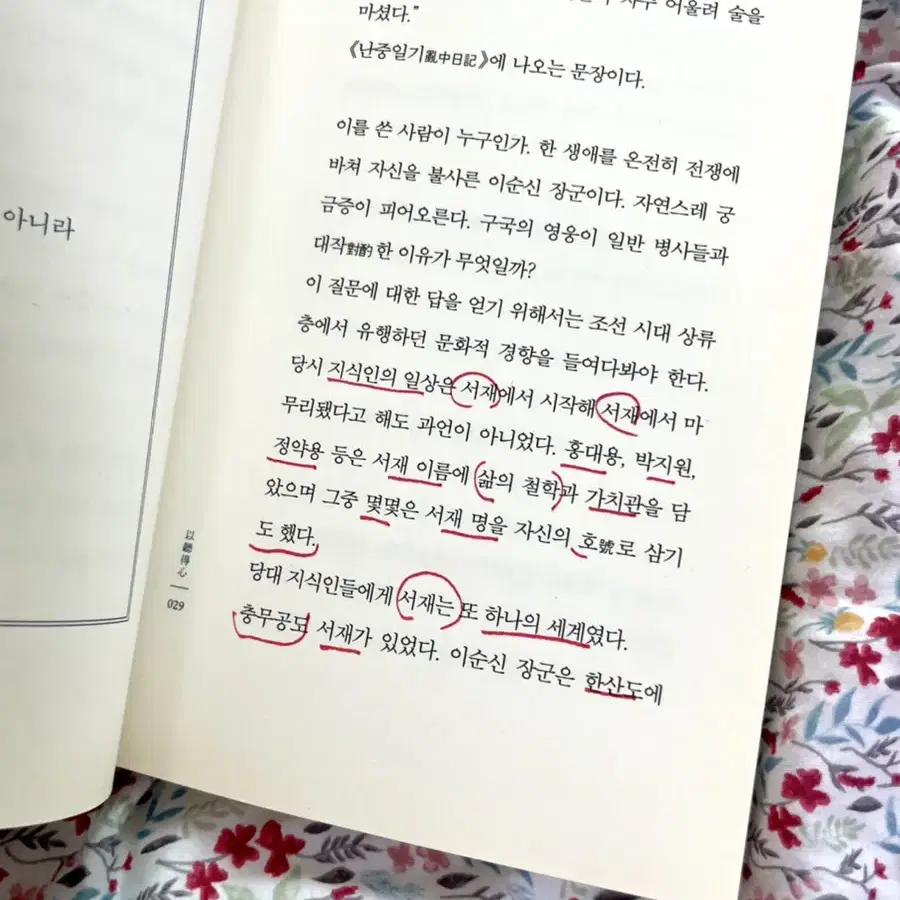 아니라
자주 어울려 술을
마셨다.”
《난중일기亂中日記》에 나오는 문장이다.
이를 쓴 사람이 누구인가. 한 생애를 온전히 전쟁에
바쳐 자신을 불사른 이순신 장군이다. 자연스레 궁
금증이 피어오른다. 구국의 영웅이 일반 병사들과
대작對酌한 이유가 무엇일까?
이 질문에 대한 답을 얻기 위해서는 조선 시대 상류
층에서 유행하던 문화적 경향을 들여다봐야 한다.
당시 지식인의 일상은 서재에서 시작해 서재에서 마
무리됐다고 해도 과언이 아니었다. 홍대용, 박지원,
정약용 등은 서재 이름에 삶의 철학과 가치관을 담
았으며 그중 몇몇은 서재 명을 자신의 호號로 삼기
도 했다.
당대 지식인들에게 서재는 또 하나의 세계였다.
충무공도 서재가 있었다. 이순신 장군은 한산도에
以聽得心
029